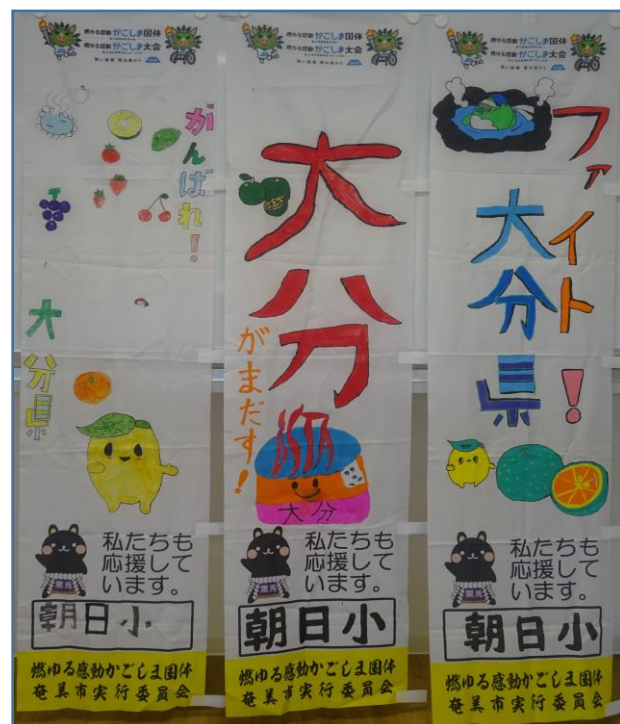 燃ゆる感動かごしま国体
燃ゆる感動かごしま大会
がんばれ!
大分県
私たちも
応援して
います。
黒兎
朝日小
燃ゆる感動かごしま国体
奄美市実行委員会
燃ゆる感動かごしま国体
燃ゆる感動かごしま大会
大分
がまだす!
大分
私たちも
応援して
います。
黒兎
朝日小
燃ゆる感動かごしま国体
奄美市実行委員会
燃ゆる感動かごしま国体
燃ゆる感動かごしま大会
ファイト!
大分県
私たちも
応援して
います。
黒兎
朝日小
燃ゆる感動かごしま国体
奄美市実行委員会